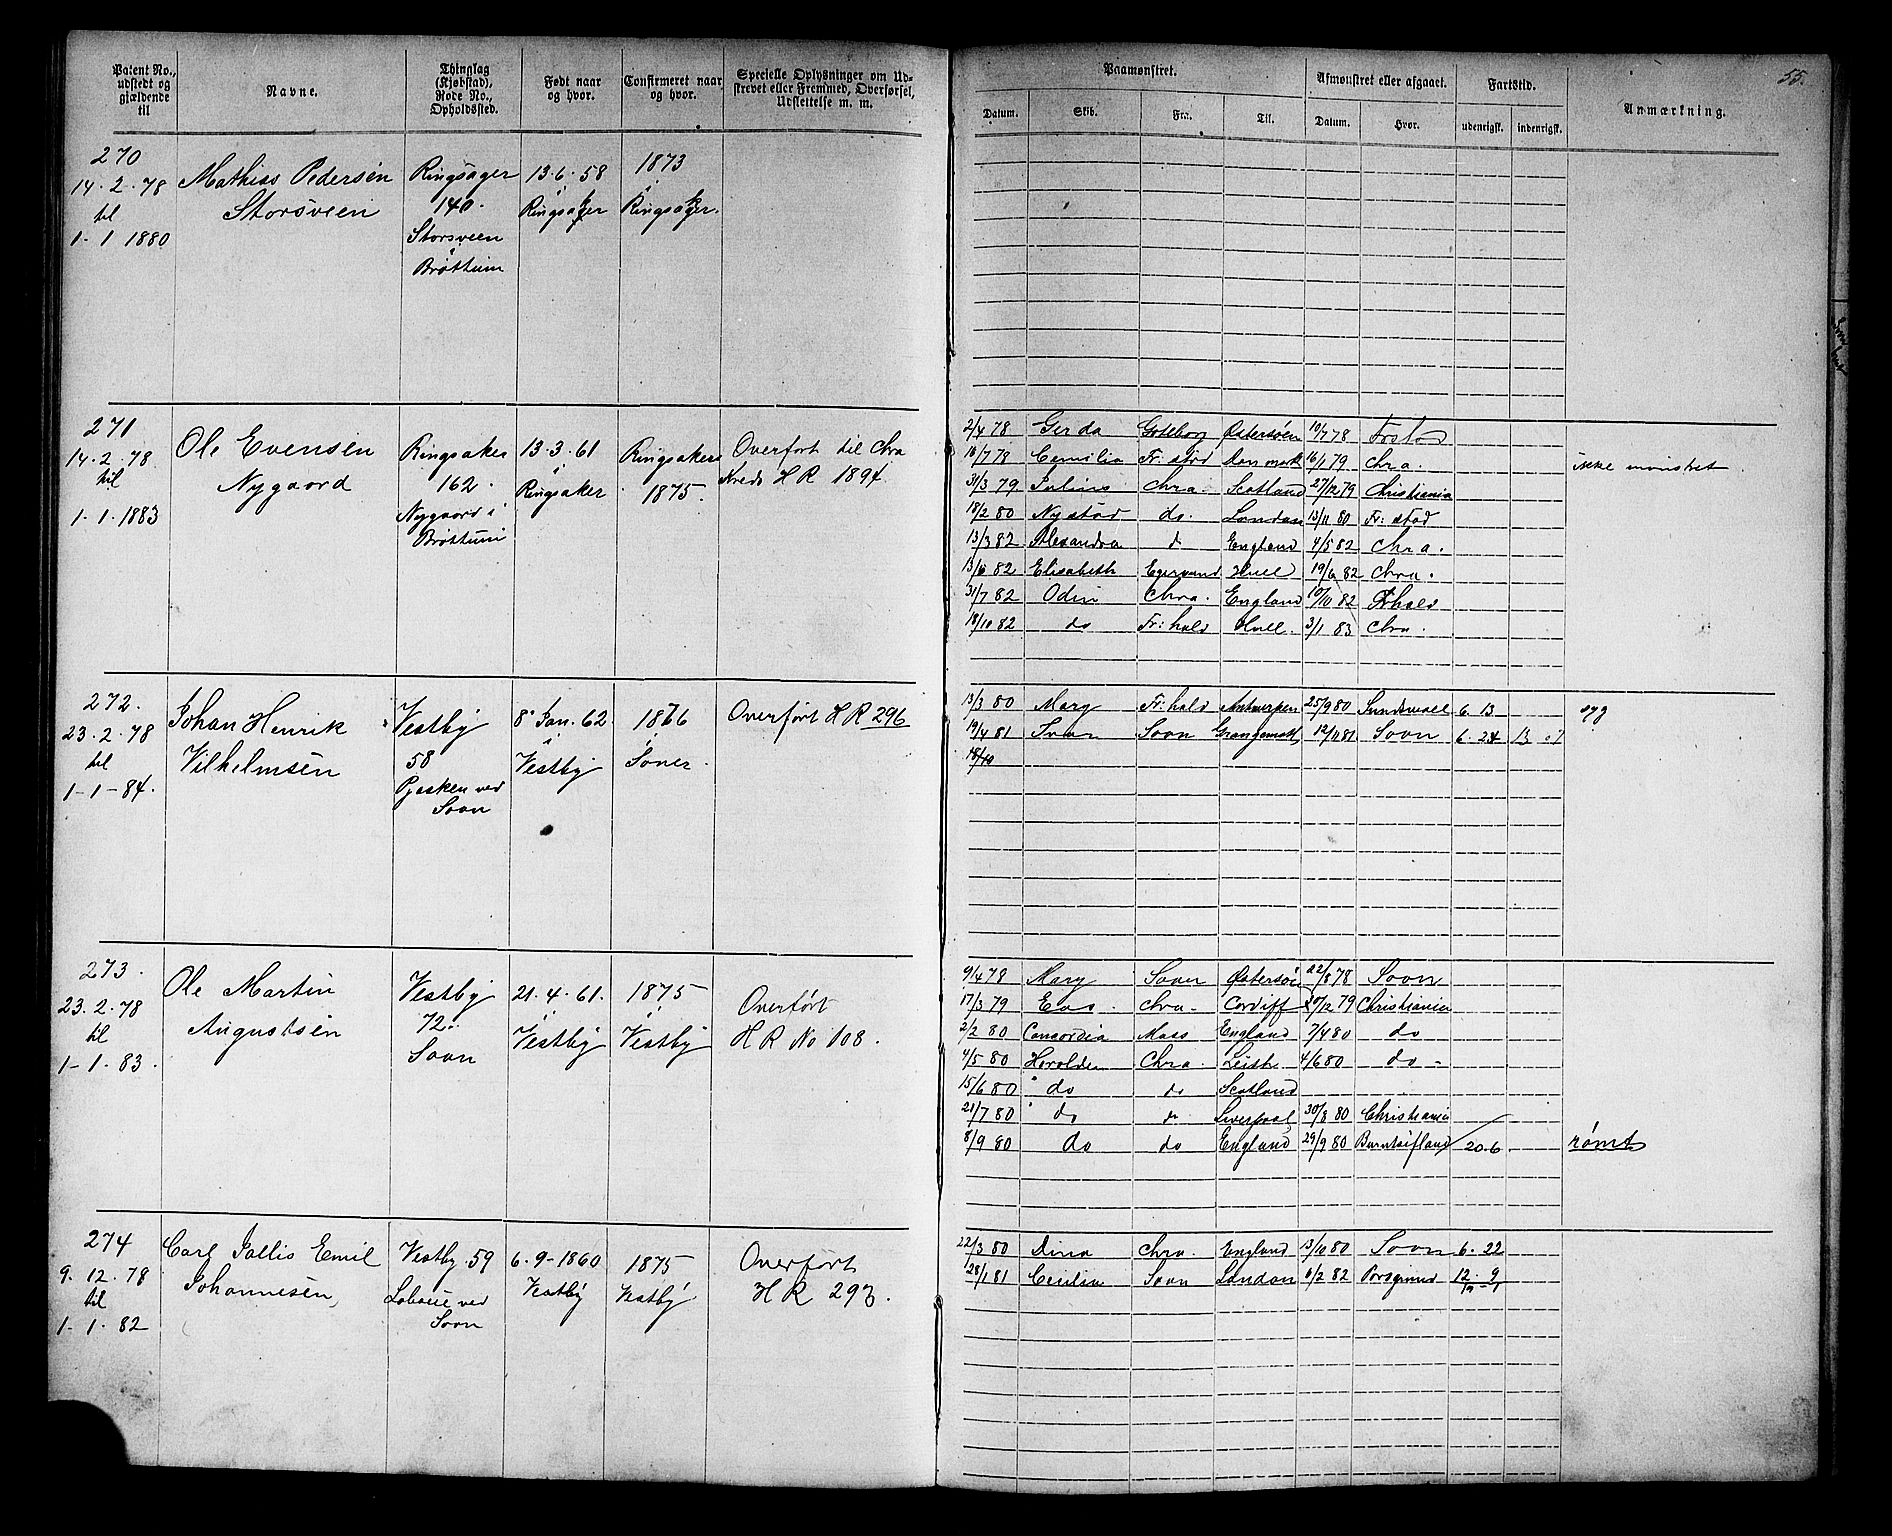 Patent No., udstedt og gjældende til
Navne.
Thinglag (Kjøbstad), Rode No., Opholdssted.
Født naar og hvor.
Confirmeret naar og hvor.
Specielle Oplysninger om Udstrevet eller Fremmed, Overførsel, Udslettelse m. m.
Paamønstret.
Datum.
Skib.
Fra.
Til.
Afmønstret eller afgaaet.
Datum.
Hvor.
Fartstid.
udenrigsk.
indenrigsk.
Anmærkning.
55.
270
14. 2. 78
til
1. 1 1880
Mathias Pedersen
Storsveen
Ringsager
140.
Storsveen
i
Brøttum
13. 6. 58
i
Ringsaker
1873
i
Ringsaker.
271
14. 2. 78
til
1. 1. 1883
Ole Evensen
Nygaard
Ringsaker
162.
Nygaard i
Brøttum
13. 3. 61
i
Ringsaker
Ringsaker
1875.
Overført til Chra
Kreds H R 1894.
2/4 78 Gerda Gøteborg Østersøen 10/7 78 Frstad
16/7 78 Camilia Fr: stad Danmark 16/1 79 Chra. ikke mønstret
31/3 79 Julius Chra. Scotland 27/12 79 Christiania
18/2 80 Nystad do. London 13/11 80 Fr: stad
13/3 82 Alexandra d England 4/5 82 Chra.
13/6 82 Elisabeth Egersund Hull 19/6 82 Chra.
31/7 82 Odin Chra. England 10/10 82 Frhald
18/10 82 do Fr: hald Hull. 3/1 83 Chra.
272.
23. 2. 78
til
1-1-84.
Johan Henrik
Vilhelmsen
Vestby
58
ved
Soon
8' Jan. 62
i
Vestby
1876
i
Soner.
Overført H R 296
13/3 80 Mary Fr: hald Antwerpen 25/9 80 Sundsvall 6. 13
19/4 81 Svan Soon 12/11 81 Soon 6. 24 13 . 7
18/10
273.
23. 2. 78
til
1-1. 83.
Ole Martin
Augustsen
Vestby
72.
Soon
21. 4. 61.
i
Vestby
1875
i
Vestby
Overført
H R No 108.
9/4 78 Mary Soon Østersøen 22/8 78 Soon
17/3 79 Eos. Chra. Cardiff 20/12 79 Christiania
2/2 80 Concordia Moss England 7/4 80 do
4/5 80 Haralden Chra. Leith 4/6 80 do -
15/6 80 " do do Scotland
21/7 80 " do do Liverpool 30/8 80 Christiania
8/9 80 do do England 29/9 80 Burntisland 20. 6 rømt
274
9. 12. 78
til
1. 1. 82
Carl Emil
Johannesen,
Vestby 59
ved
Soon
6. 9-1860
Vestby
1875
Vestby.
Overført
H R 293.
22/3 80 Dina Chra. England 13/10 80 Soon 6. 22
28/1 81 Cecilia Soon London 6/2 82 Porsgrund 12. 9